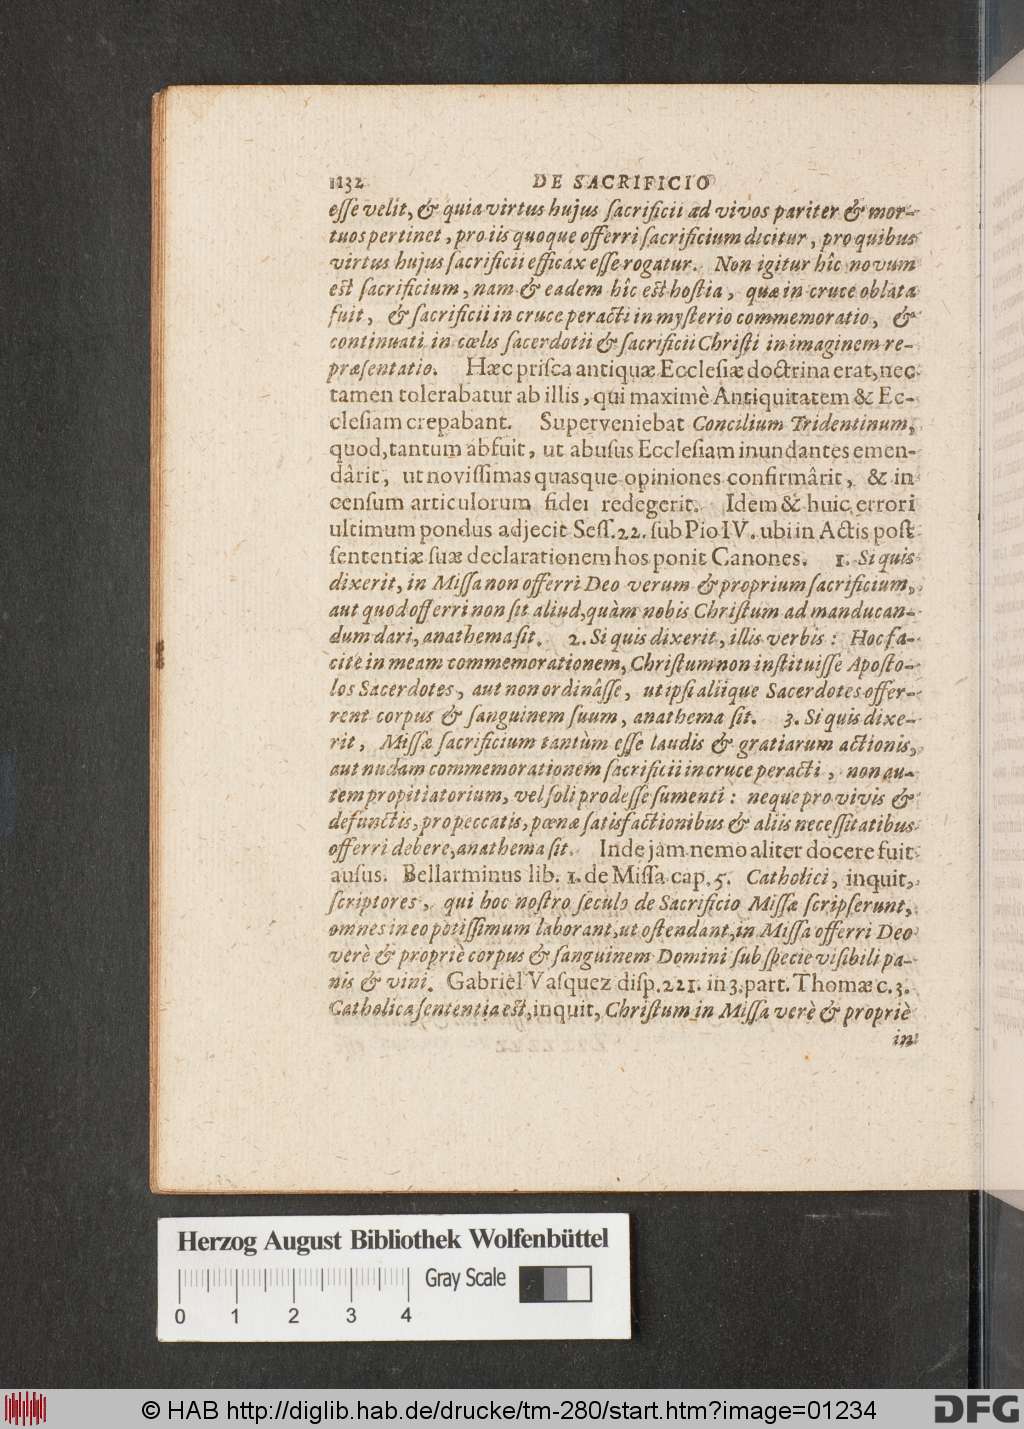 1132 DE SACRIFICIO
esse velit, & quia virtus hujus sacrificii ad vivos pariter & mor-
tuos pertinet, pro iis quoque offerri sacrificium dicitur, pro quibus
virtus hujus sacrificii efficax esse rogatur. Non igitur hîc novum
est sacrificium, nam & eadem hîc est hostia, quæ in cruce oblata
fuit, & sacrificii in cruce peracti in mysterio commemoratio, &
continuati in cœlis sacerdotii & sacrificii Christi in imaginem re-
præsentatio. Hæc prisca antiquæ Ecclesiæ doctrina erat, nec
tamen tolerabatur ab illis, qui maximè Antiquitatem & Ec-
clesiam crepabant. Superveniebat Concilium Tridentinum,
quod, tantum abfuit, ut abusus Ecclesiam inundantes emen-
dârit, ut novissimas quasque opiniones confirmârit, & in
censum articulorum fidei redegerit. Idem & huic errori
ultimum pondus adjecit Sess. 22. sub Pio IV. ubi in Actis post
sententiæ suæ declarationem hos ponit Canones. 1. Si quis
dixerit, in Missa non offerri Deo verum & proprium sacrificium,
aut quod offerri non sit aliud, quàm nobis Christum ad manducan-
dum dari, anathema sit. 2. Si quis dixerit, illis verbis: Hoc fa-
cite in meam commemorationem, Christum non instituisse Aposto-
los Sacerdotes, aut non ordinâsse, ut ipsi aliique Sacerdotes offer-
rent corpus & sanguinem suum, anathema sit. 3. Si quis dixe-
rit, Missæ sacrificium tantùm esse laudis & gratiarum actionis,
aut nudam commemorationem sacrificii in cruce peracti, non au-
tem propitiatorium, vel soli prodesse sumenti: neque pro vivis &
defunctis, pro peccatis, pœnæ satisfactionibus & aliis necessitatibus
offerri debere, anathema sit. Inde jam nemo aliter docere fuit
ausus. Bellarminus lib. 1. de Missa cap. 5. Catholici, inquit,
scriptores, qui hoc nostro seculo de Sacrificio Missæ scripserunt,
omnes in eo potissimum laborant, ut ostendant, in Missa offerri Deo
verè & propriè corpus & sanguinem Domini sub specie visibili pa-
nis & vini. Gabriel Vasquez disp. 221. in 3. part. Thomæ c. 3.
Catholica sententia est, inquit, Christum in Missa verè & propriè
in
Herzog August Bibliothek Wolfenbüttel
Gray Scale
0 1 2 3 4
© HAB http://diglib.hab.de/drucke/tm-280/start.htm?image=01234
DFG